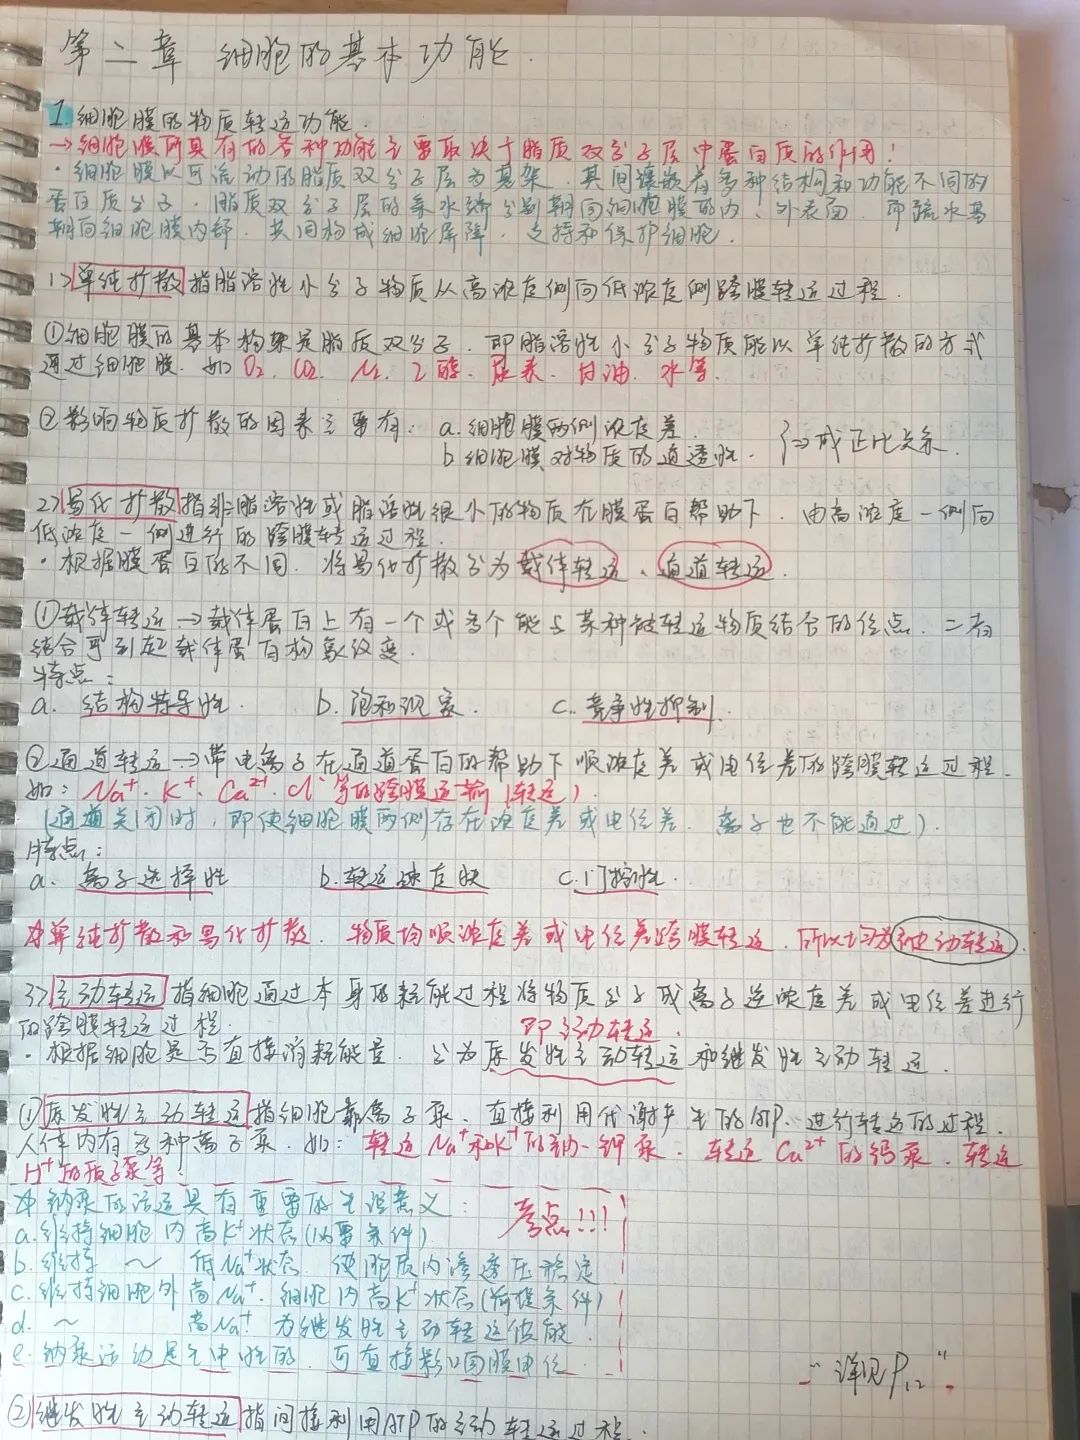 第二章 细胞的基本功能.
1.细胞膜的物质转运功能.
→细胞膜所具有的各种功能主要取决于脂质双分子层中蛋白质的作用!
·细胞膜以可流动的脂质双分子层为基架.其间镶嵌着多种结构和功能不同的
蛋白质分子.脂质双分子层的亲水端分别朝向细胞膜的内、外表面.即疏水基
朝向细胞膜内部.共同构成细胞屏障.支持和保护细胞.
1>单纯扩散指脂溶性小分子物质从高浓度侧向低浓度侧跨膜转运过程.
①细胞膜的基本构架是脂质双分子.即脂溶性小分子物质能以单纯扩散的方式
通过细胞膜.如O₂.CO₂.N₂.乙醇.尿素.甘油.水等.
②影响物质扩散的因素主要有: a.细胞膜两侧浓度差.
b.细胞膜对物质的通透性. 成正比关系.
2>易化扩散指非脂溶性或脂溶性很小的物质在膜蛋白帮助下 由高浓度一侧向
低浓度一侧进行的跨膜转运过程.
·根据膜蛋白的不同.将易化扩散分为载体转运、通道转运.
①载体转运→载体蛋白上有一个或多个能与某种被转运物质结合的位点.二者
结合可引起载体蛋白构象改变.
特点:
a. 结构特异性. b.饱和现象. c.竞争性抑制.
②通道转运→带电离子在通道蛋白的帮助下顺浓度差或电位差的跨膜转运过程.
如:Na⁺.K⁺.Ca²⁺.Cl⁻等的跨膜运输(转运).
(通道关闭时,即使细胞膜两侧存在浓度差或电位差.离子也不能通过).
特点:
a. 离子选择性 b.转运速度快 c.门控性.
单纯扩散和易化扩散.物质均顺浓度差或电位差跨膜转运.所以均为被动转运.
3>主动转运指细胞通过本身的耗能过程将物质分子或离子逆浓度差或电位差进行
的跨膜转运过程. 即主动转运.
·根据细胞是否直接消耗能量.分为原发性主动转运和继发性主动转运.
①原发性主动转运指细胞靠离子泵.直接利用代谢产生的ATP.进行转运的过程.
人体内有多种离子泵 如:转运Na⁺和K⁺的钠-钾泵.转运Ca²⁺的钙泵.转运
H⁺的质子泵等.
钠泵的活运具有重要的生理意义: 考点!!!
a.维持细胞内高K⁺状态(必要条件)
b.维持~低Na⁺状态.使胞质内渗透压稳定
c.维持细胞外高Na⁺.细胞内高K⁺状态(前提条件)
d. ~ 高Na⁺.为继发性主动转运供能.
e.钠泵运动是生电性的.可直接影响膜电位.
"详见P₁₂".
②继发性主动转运指间接利用ATP的主动转运过程.